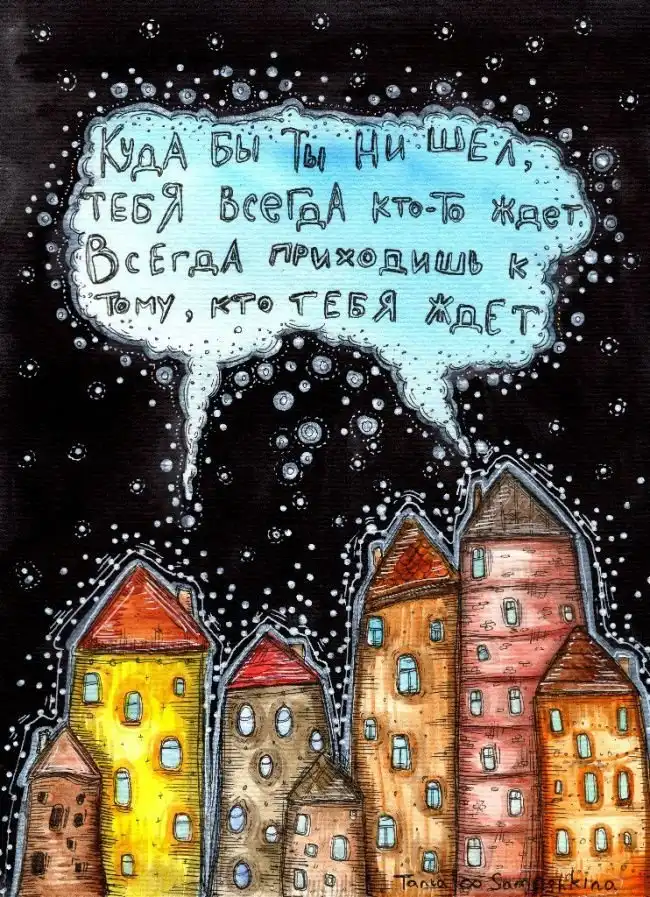 Куда бы ты ни шел,
тебя всегда кто-то ждет.
Всегда приходишь к
тому, кто тебя ждет